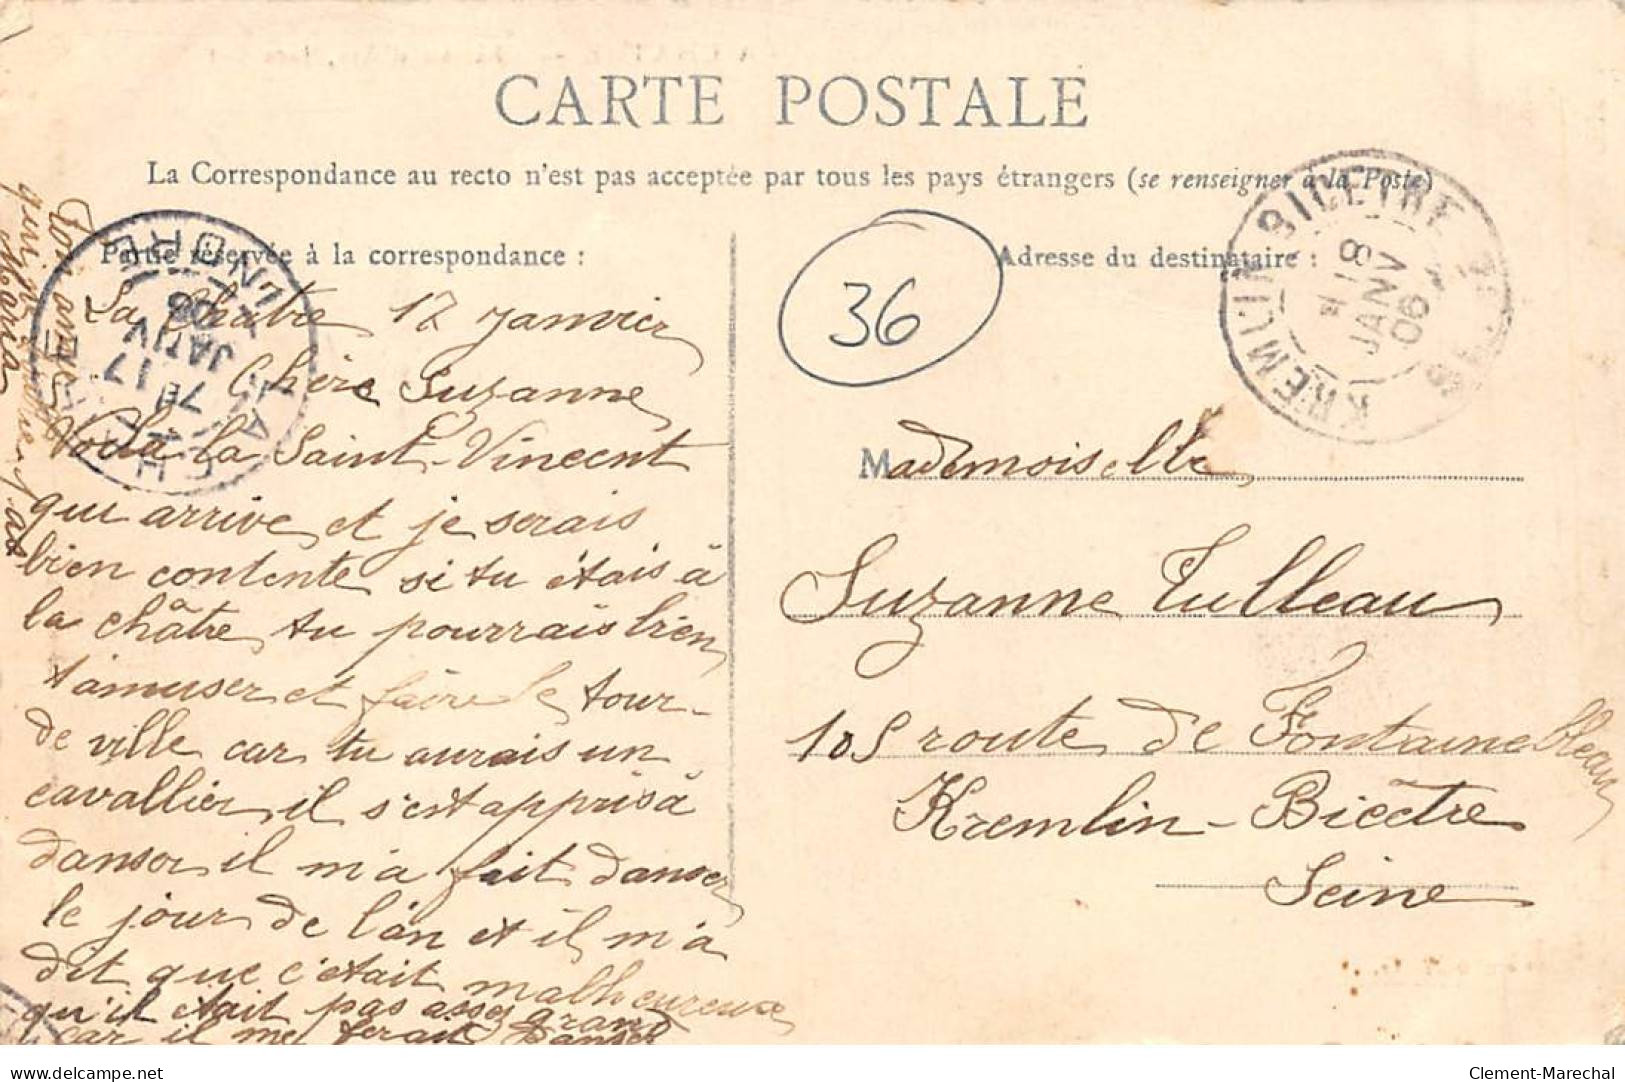 CARTE POSTALE
La Correspondance au recto n'est pas acceptée par tous les pays étrangers (se renseigner à la Poste)
Partie réservée à la correspondance :
Adresse du destinataire :
36
LA CHATRE
INDRE
7E 17
JANV
06
KREMLIN BICETRE
18
JANV
06
La Châtre 17 Janvier
Chère Suzanne
Voila la Saint-Vincent
qui arrive et je serais
bien contente si tu étais à
la châtre tu pourrais bien
t'amuser et faire le tour
de ville car tu aurais un
cavallier il s'est appris à
danser il m'a fait danser
le jour de l'an et il m'a
dit que c'était malheureuse
qu'il était pas asses grand
car il me ferait danser
Ton amie
qui ne pas
Maria
Mademoiselle
Suzanne Tulleau
105 route de Fontainebleau
Kremlin-Bicêtre
Seine
delcampe.net
Clement-Marechal